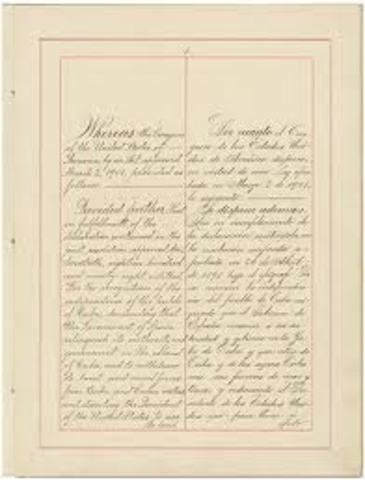 Whereas the Congress
of the United States of
America, by an Act approved
March 2, 1901, provided as
follows:
Provided further That
in fulfillment of the
declaration contained in the
joint resolution approved April
twentieth, eighteen hundred
and ninety eight entitled,
"For the recognition of the
independence of the people
of Cuba, demanding that
the Government of Spain
relinquish its authority and
government in the island
of Cuba, and to withdraw
its land and naval forces
from Cuba and Cuban waters
and directing the President
of the United States to use
the land
Por cuanto el Con
greso de los Estados Uni
dos de América dispuso,
en virtud de una Ley apro
bada en Marzo 2 de 1901,
lo siguiente
Se dispone además
Que en cumplimiento de
la declaración contenida en
la resolución conjunta a
probada en 20 de Abril
de 1898 bajo el epígrafe
la independen
cia del pueblo de Cuba
el Gobierno de
España renuncie a su au
toridad y gobierno en la Is
la de Cuba y que retire de
Cuba y de las aguas Cuba
nas sus fuerzas de mar y
tierra y ordenando al Pre
sidente de los Estados Uni
dos que